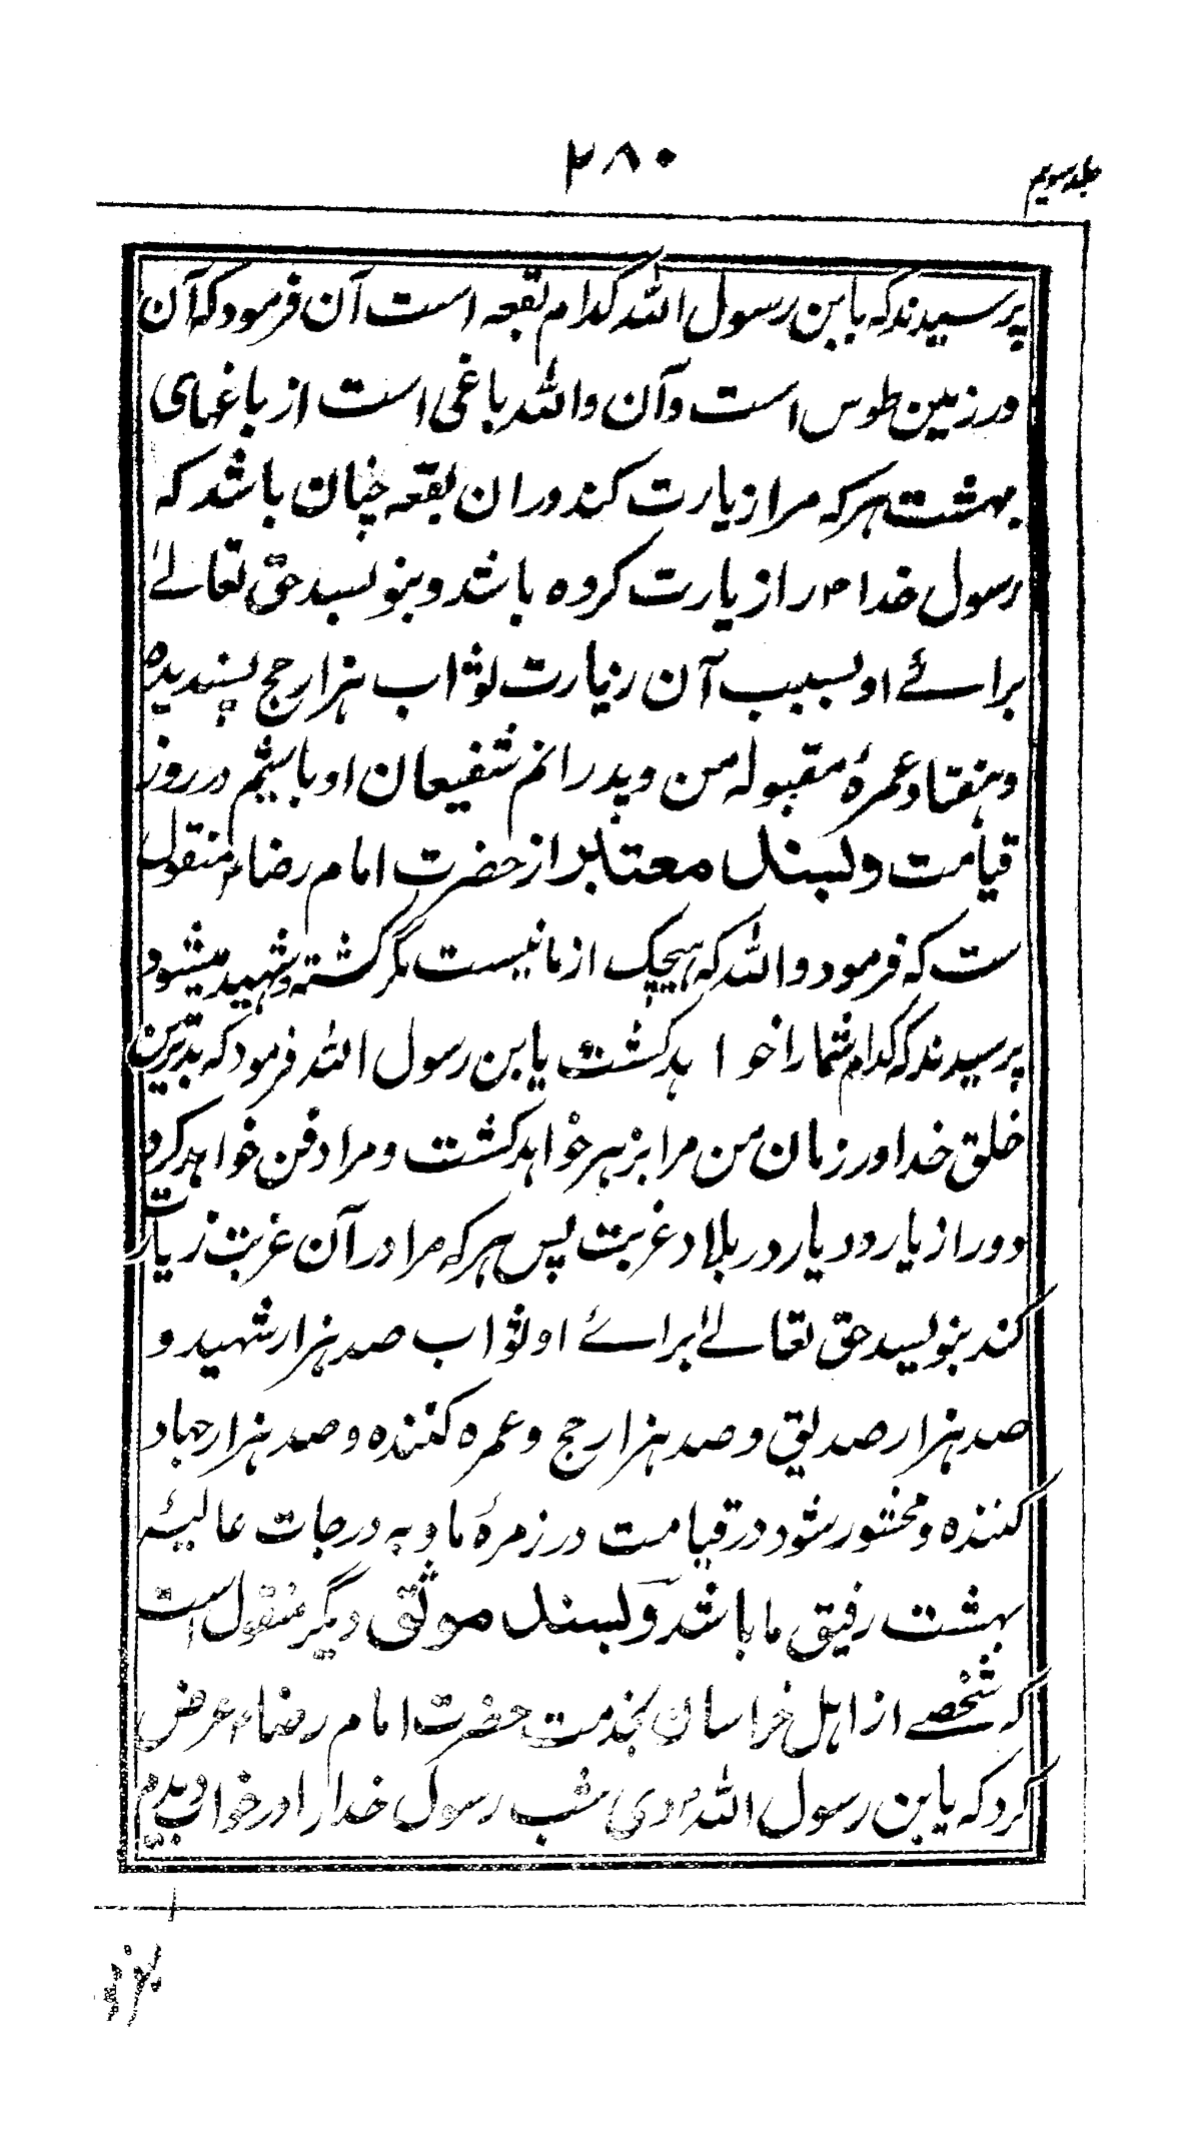 ۲۸۰
جلد سویم
پرسیدند که یابن رسول الله کدام بقعه است آن فرمود که آن
در زمین طوس است و آن والله باغی است از باغهای
بهشت هر که مرا زیارت کند در ان بقعه چنان باشد که
رسول خدا ۳ را زیارت کرده باشد و بنویسد حق تعالےٰ
برائے او بسبب آن زیارت ثواب هزار حج پسندیده
و هفتاد عمرهٔ مقبوله من و پدرانم شفیعان او باشیم در روز
قیامت و بسند معتبر از حضرت امام رضاء منقول
ست که فرمود والله که هیچیک از ما نیست مگر کشته و شهید میشود
پرسیدند که کدام شما را خوا هد کشت یابن رسول الله فرمود که بدترین
خلق خدا در زمان من مرا بزهر خواهد کشت و مرا دفن خواهد کرد
دور از یار و دیار در بلاد غربت پس هر که مرا در آن غربت زیارت
کند بنویسد حق تعالےٰ برائے او ثواب صد هزار شهید و
صد هزار صدیق و صد هزار حج و عمره کننده و صد هزار جهاد
کننده و محشور شود در قیامت در زمرهٔ ما و به درجات عالیهٔ
بهشت رفیق ما باشد و بسند موثق دیگر منقول است
که شخصے از اهل خراسان بخدمت حضرت امام رضاء عرض
کرد که یابن رسول الله دی شب رسول خدا را در خواب دیدم